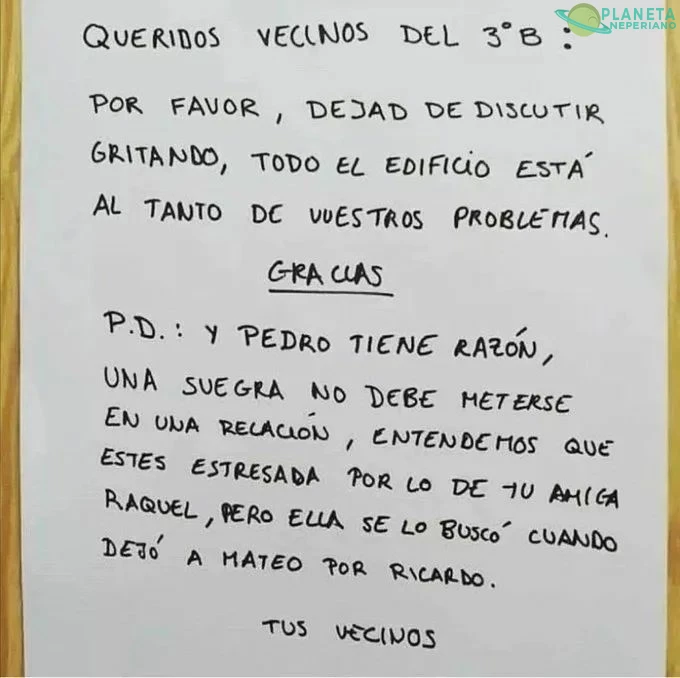 PLANETA
NEPERIANO
QUERIDOS VECINOS DEL 3ºB:
POR FAVOR, DEJAD DE DISCUTIR
GRITANDO, TODO EL EDIFICIO ESTÁ
AL TANTO DE VUESTROS PROBLEMAS.
GRACIAS
P.D.: Y PEDRO TIENE RAZÓN,
UNA SUEGRA NO DEBE METERSE
EN UNA RELACIÓN, ENTENDEMOS QUE
ESTES ESTRESADA POR LO DE TU AMIGA
RAQUEL, PERO ELLA SE LO BUSCÓ CUANDO
DEJÓ A MATEO POR RICARDO.
TUS VECINOS